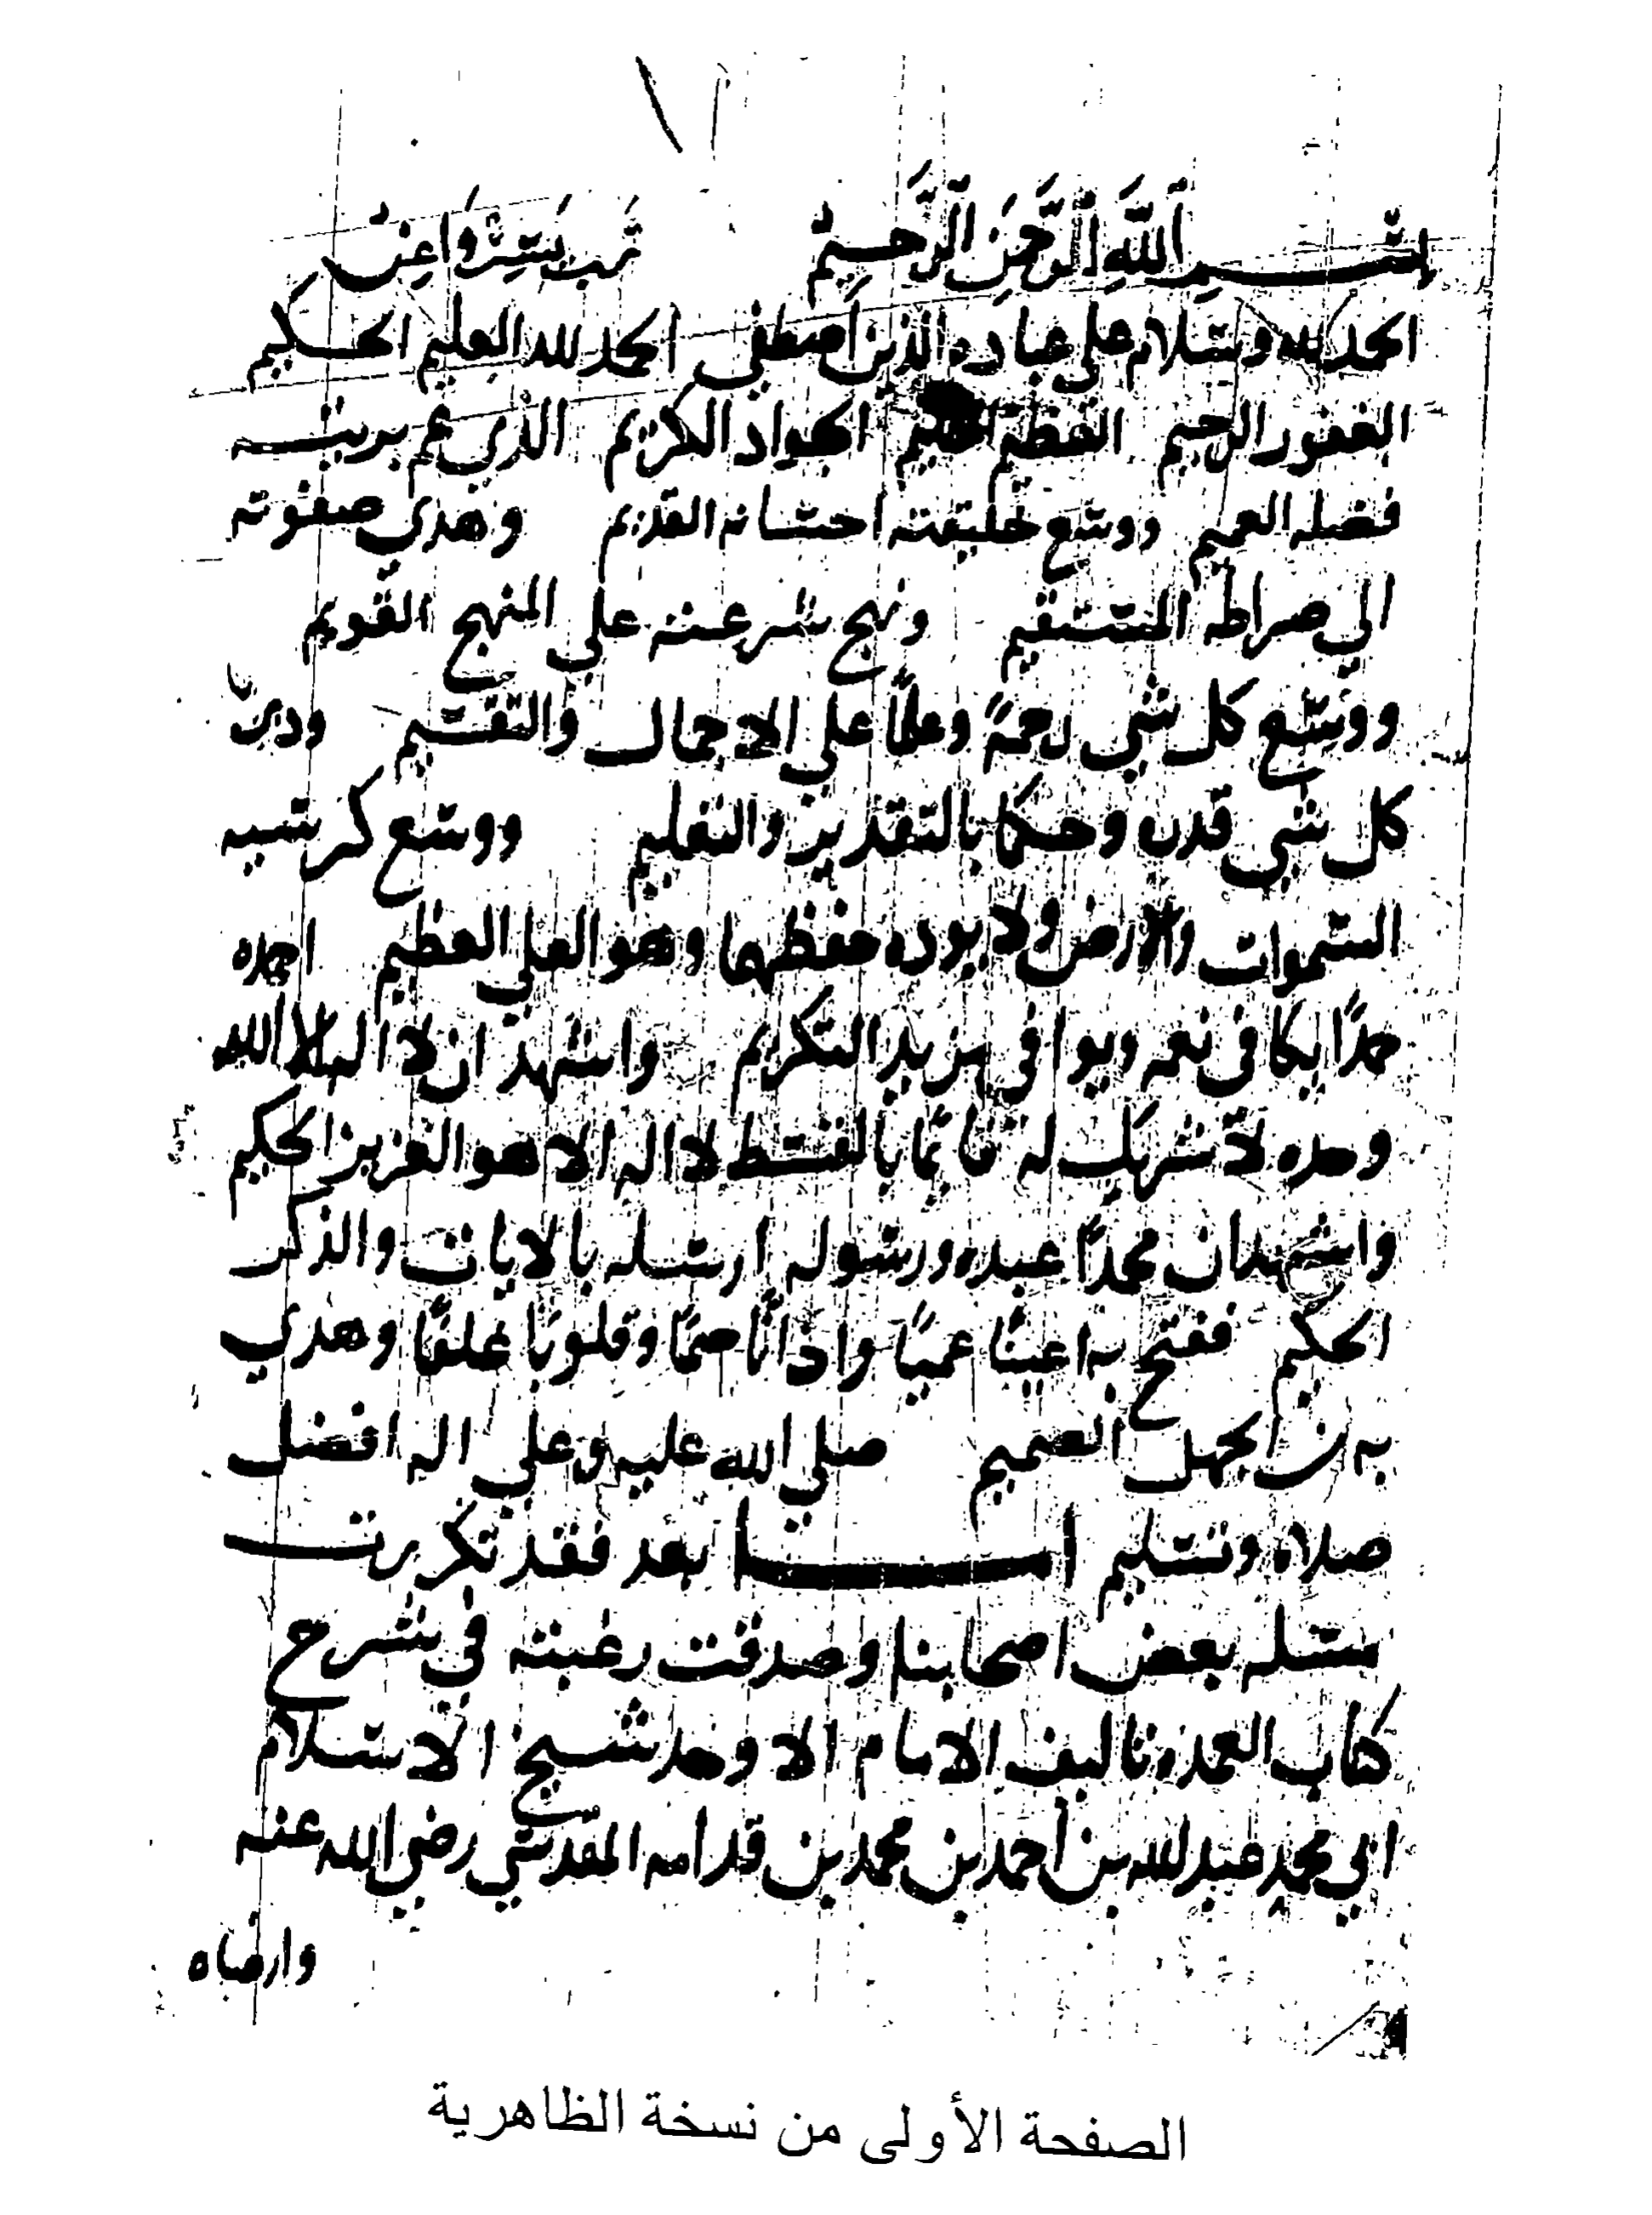 بسم اللَّهِ الرَّحمَنِ الرَّحِيمْ رَبّ يَسِّرْ وَاعِنْ
الحمد لله وسلام على عباده الذين اصطفى الحمد لله العليم الحكيم
الغفور الرحيم العظيم الحليم الجواد الكريم الذي عم بريته
فضله العميم ووسع خليقته احسانه القديم وهدي صفوته
الي صراطه المستقيم ونهج شرعته علي المنهج القويم
ووسع كل شي رحمةً وعلمًا علي الاجمال والتقسيم ودبر
كل شي قدره وحكما بالتقدير والتعليم ووسع كرسيه
السموات والارض ولا يوده حفظهما وهو العلي العظيم احمده
حمدًا يكافى نعمه ويوافى مزيد التكريم واشهد ان لا اله الا الله
وحده لا شريك له قائمًا بالقسط لا اله الا هو العزيز الحكيم
واشهد ان محمدًا عبده ورسوله ارسله بالايات والذكر
الحكيم ففتح به اعينًا عميًا واذانًا صمًا وقلوبًا غلفًا وهدي
به من الجهل الصميم صلي الله عليه وعلي اله افضل
صلاه وتسليم اما بعد فقد تكررت
مسله بعض اصحابنا وصدقت رغبته في شرح
كتاب العمده تاليف الامام الاوحد شيخ الاسلام
ابي محمد عبد الله بن أحمد بن محمد بن قدامه المقدسي رضي الله عنه
وارضاه
الصفحة الأولى من نسخة الظاهرية